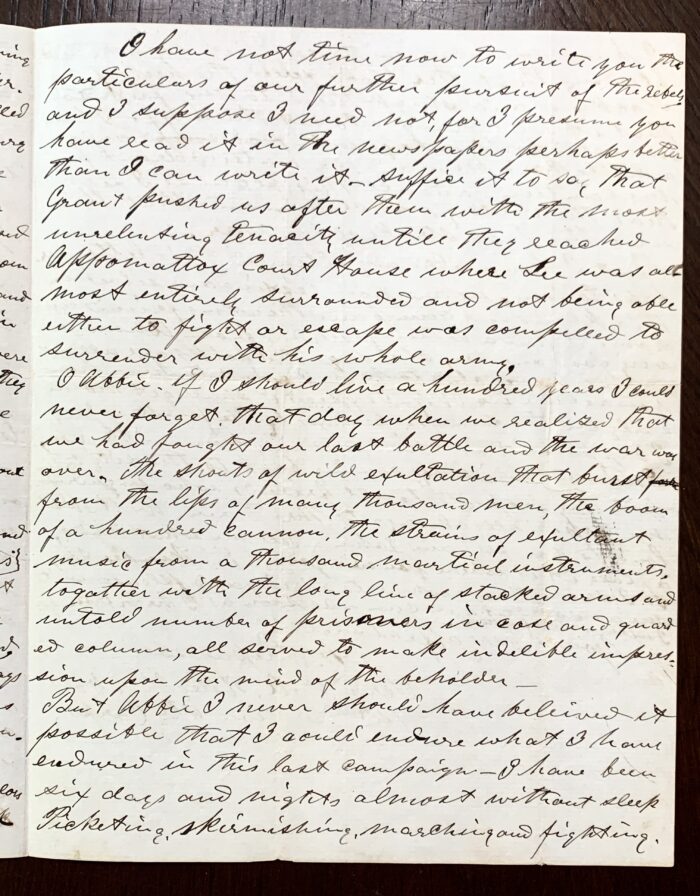 I have not time now to write you the
particulars of our further pursuit of the rebels
and I suppose I need not, for I presume you
have read it in the newspapers perhaps better
than I can write it – suffice it to say that
Grant pushed us after them with the most
unrelenting tenacity untill they reached
Appomattox Court House where Lee was all
most entirely surrounded and not being able
either to fight or escape was compelled to
surrender with his whole army.
O Abbie. if I should live a hundred years I could
never forget. that day when we realized that
we had fought our last battle and the war was
over. The shouts of wild exultation that burst
from the lips of many thousand men, the boom
of a hundred cannon, the strains of exultant
music from a thousand martial instruments.
togather with the long line of stacked arms and
untold number of prisoners in close and guard
ed column, all served to make indelible impres-
sion upon the mind of the beholder –
But Abbie I never should have beleived it
possible that I could endure what I have
endured in this last campaign – I have been
six days and nights almost without sleep
Picketing, skirmishing, marching and fighting.